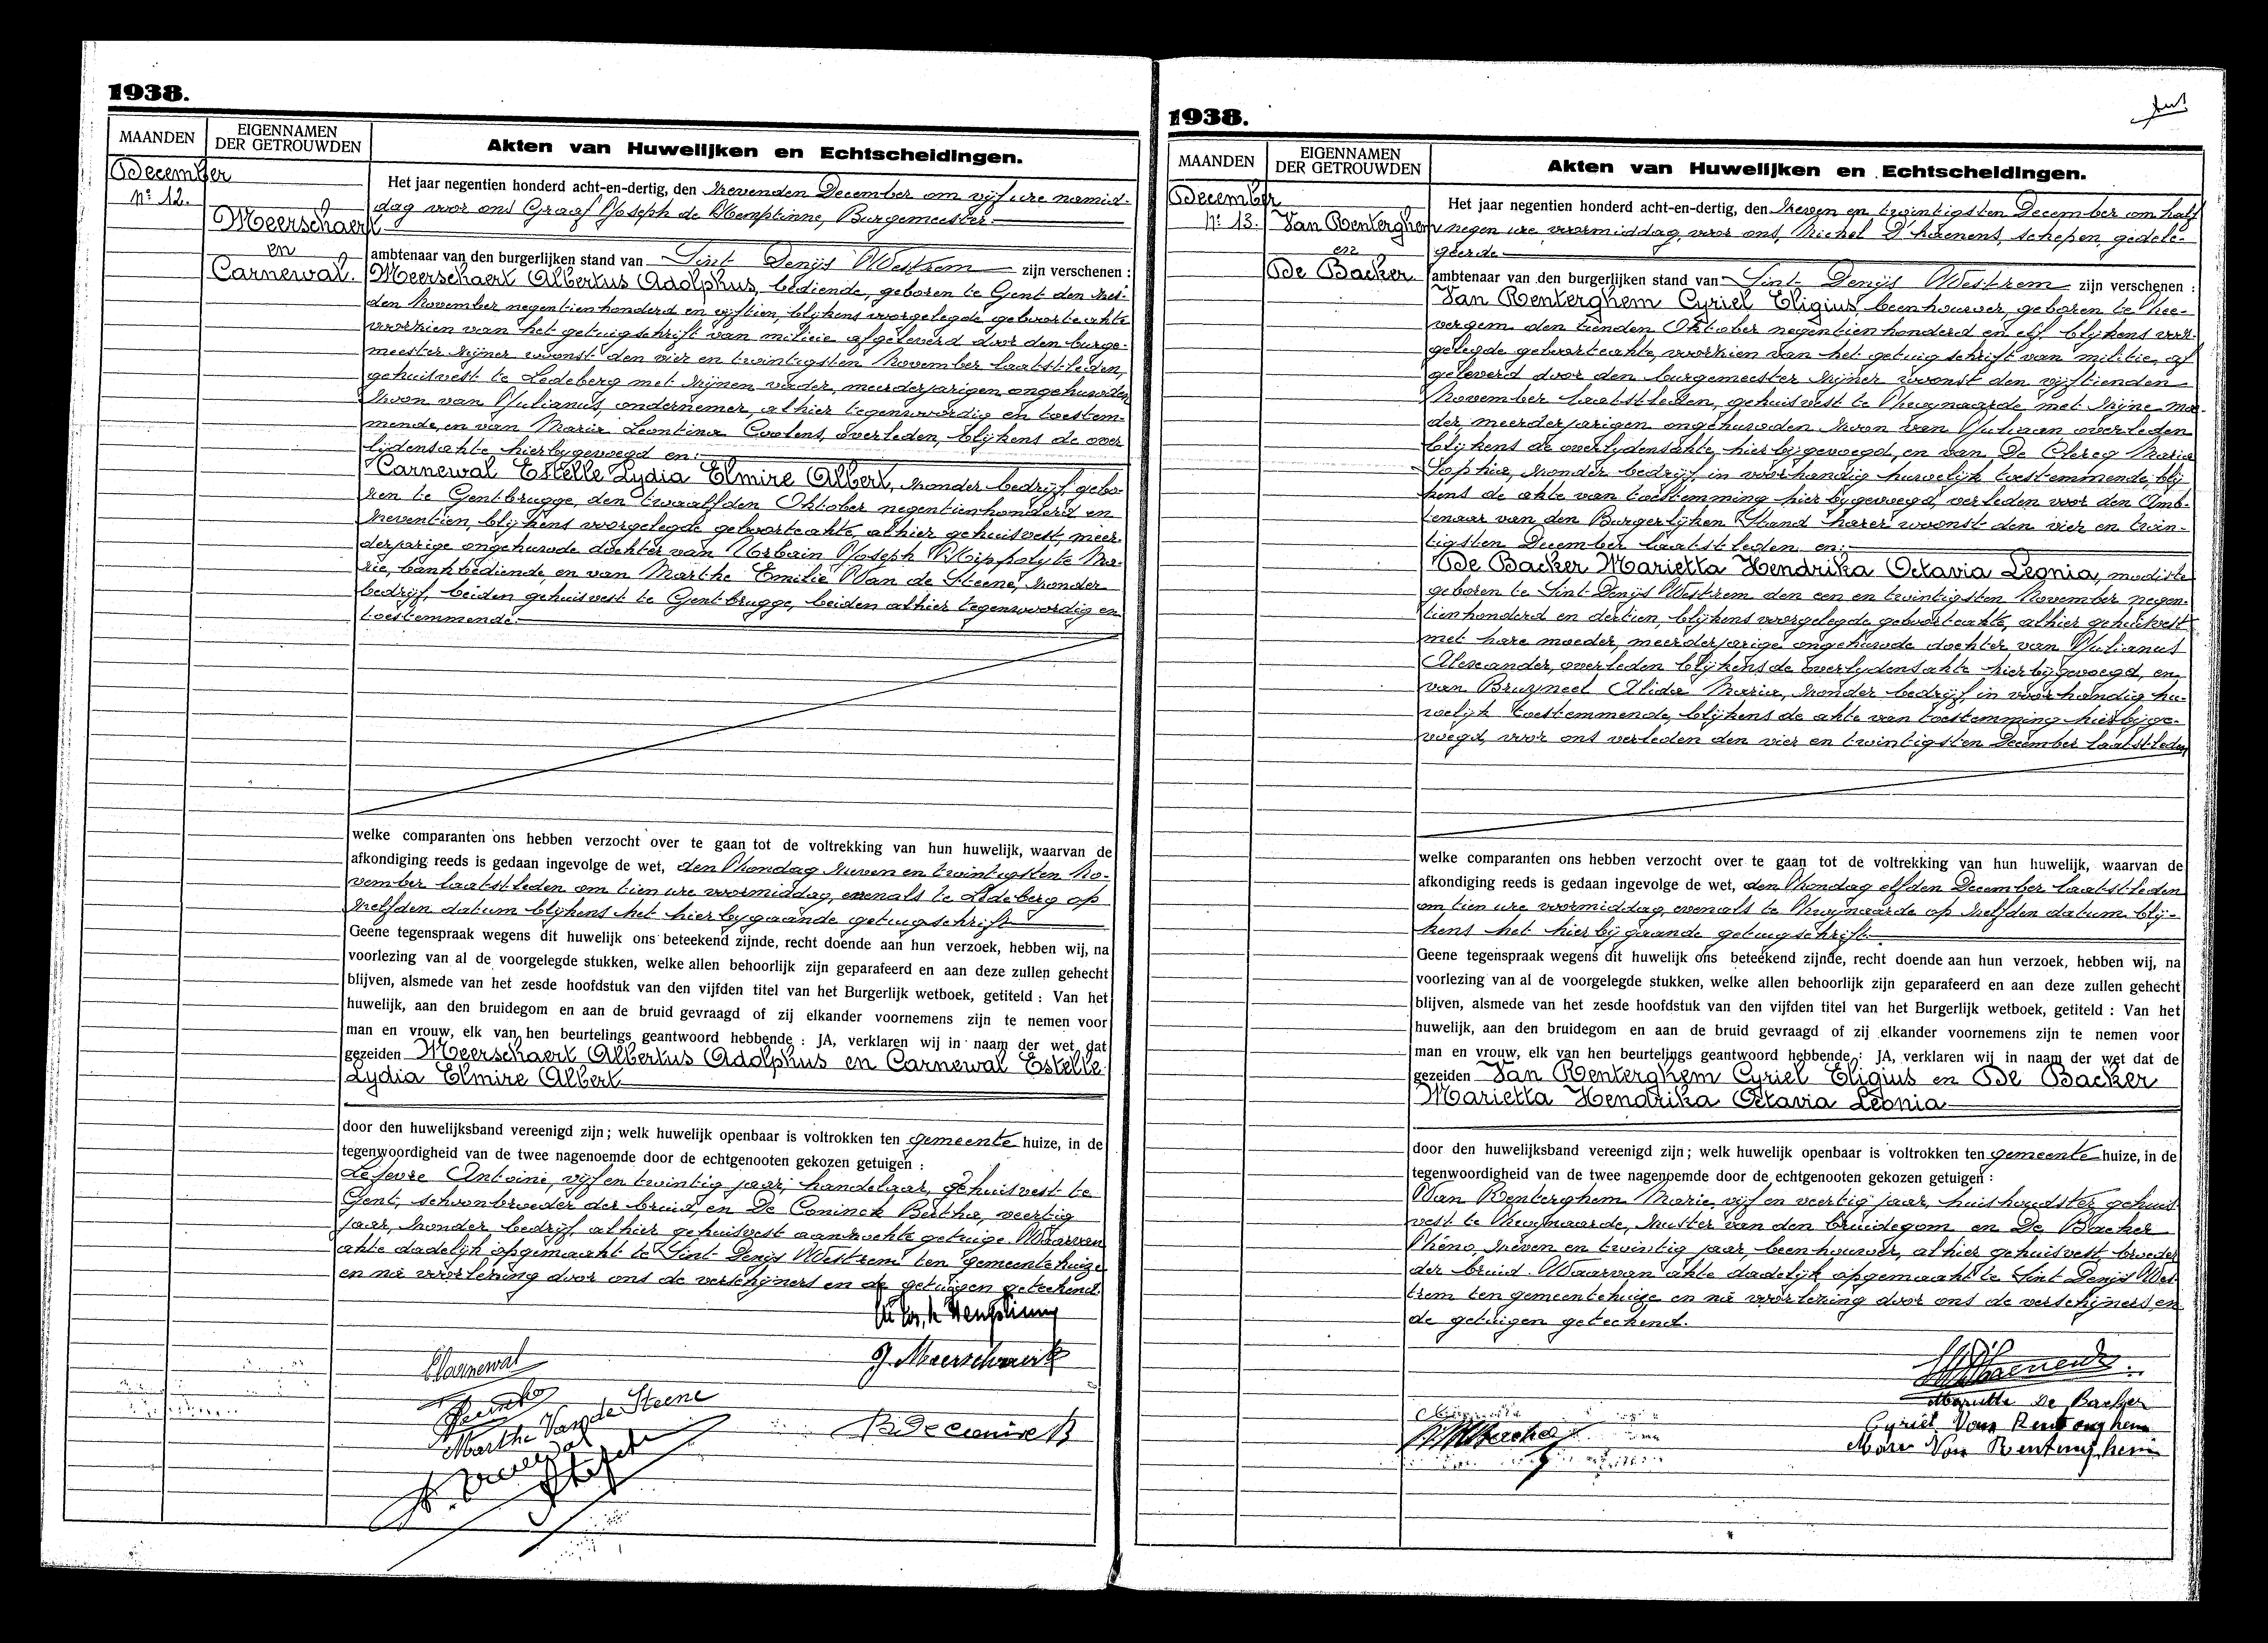 1938.
MAANDEN
EIGENNAMEN
DER GETROUWDEN
Akten van Huwelijken en Echtscheidingen.
December
Nº 12.
Meerschaert
en
Carnewal.
Het jaar negentien honderd acht-en-dertig, den zevenden December om vijf ure namid-
dag voor ons Graaf Joseph de Hemptinne, Burgemeester
ambtenaar van den burgerlijken stand van Sint Denijs Westrem zijn verschenen :
Meerschaert Albertus Adolphus, bediende, geboren te Gent den zes-
den November negentienhonderd en vijftien, blijkens voorgelegde geboorteakte
voorzien van het getuigschrift van milicie afgeleverd door den burge-
meester zijner woonst den vier en twintigsten November laatstleden,
gehuisvest te Ledeberg met zijnen vader, meerderjarigen ongehuwden
zoon van Julianus, ondernemer, alhier tegenwoordig en toestem-
mende, en van Maria Leontina Coolens, overleden, blijkens de over
lijdensakte hierbygevoegd en:
Carnewal Estelle Lydia Elmire Albert, zonder bedrijf, gebo-
ren te Gentbrugge, den twaalfden Oktober negentienhonderd en
zeventien, blijkens voorgelegde geboorteakte, alhier gehuisvest, meer-
derjarige ongehuwde dochter van Urbain Joseph Hippolyte Ma-
rie, bankbediende, en van Marthe Emilie Van de Steene, zonder
bedrijf, beiden gehuisvest te Gentbrugge, beiden alhier tegenwoordig en
toestemmende.
welke comparanten ons hebben verzocht over te gaan tot de voltrekking van hun huwelijk, waarvan de
afkondiging reeds is gedaan ingevolge de wet, den Zondag zeven en twintigsten No-
vember laatstleden om tien ure voormiddag, evenals te Ledeberg op
zelfden datum blijkens het hierbygaande getuigschrift
Geene tegenspraak wegens dit huwelijk ons beteekend zijnde, recht doende aan hun verzoek, hebben wij, na
voorlezing van al de voorgelegde stukken, welke allen behoorlijk zijn geparafeerd en aan deze zullen gehecht
blijven, alsmede van het zesde hoofdstuk van den vijfden titel van het Burgerlijk wetboek, getiteld : Van het
huwelijk, aan den bruidegom en aan de bruid gevraagd of zij elkander voornemens zijn te nemen voor
man en vrouw, elk van hen beurtelings geantwoord hebbende : JA, verklaren wij in naam der wet dat
gezeiden Meerschaert Albertus Adolphus en Carnewal Estelle
Lydia Elmire Albert
door den huwelijksband vereenigd zijn ; welk huwelijk openbaar is voltrokken ten gemeente huize, in de
tegenwoordigheid van de twee nagenoemde door de echtgenooten gekozen getuigen :
Lefevre Antoine, vijf en twintig jaar, handelaar, gehuisvest te
Gent, schoonbroeder der bruid, en De Coninck Bertha, veertig
jaar, zonder bedrijf alhier gehuisvest aanzochte getuige. Waarvan
akte dadelijk opgemaakt te Sint-Denijs Westrem ten gemeentehuize
en na voorlezing door ons de verschijners en de getuigen geteekend.
J. Meerschaert
Carnewal
Marthe Van de Steene
B. De Coninck
1938.
MAANDEN
EIGENNAMEN
DER GETROUWDEN
Akten van Huwelijken en Echtscheidingen.
December
Nº 13.
Van Renterghem
en
De Backer.
Het jaar negentien honderd acht-en-dertig, den zeven en twintigsten December om half
negen ure voormiddag, voor ons, Michel D'haenens, schepen, gedele-
geerde
ambtenaar van den burgerlijken stand van Sint-Denijs Westrem zijn verschenen :
Van Renterghem Cyriel Eligius, beenhouwer, geboren te Zee-
vergem den tienden Oktober negentienhonderd en elf, blijkens voor-
gelegde geboorteakte, voorzien van het getuigschrift van militie, af
geleverd door den burgemeester zijner woonst den vijftienden
November laatstleden, gehuisvest te Zwynaarde met zijne moe-
der, meerderjarigen ongehuwden zoon van Juliaan overleden
blijkens de overlydensakte, hierbygevoegd, en van De Clercq Maria
Sophia, zonder bedrijf, in voorhandig huwelijk toestemmende, blij
kens de akte van toestemming hierbygevoegd, verleden voor den Amb-
tenaar van den Burgerlijken Stand harer woonst den vier en twin-
tigsten December laatstleden en:
De Backer Marietta Hendrika Octavia Leonia, modiste
geboren te Sint Denijs Westrem den een en twintigsten November negen-
tienhonderd en dertien, blijkens voorgelegde geboorteakte, alhier gehuisvest
met hare moeder, meerderjarige ongehuwde dochter van Julianus
Alexander, overleden blijkens de overlydensakte hierbijgevoegd, en
van Bruyneel Alida Maria, zonder bedrijf, in voorhandig hu-
welijk toestemmende, blijkens de akte van toestemming hierbijge-
voegd, voor ons verleden den vier en twintigsten December laatstleden,
welke comparanten ons hebben verzocht over te gaan tot de voltrekking van hun huwelijk, waarvan de
afkondiging reeds is gedaan ingevolge de wet, den Zondag elfden December laatstleden
om tien ure voormiddag, evenals te Zwynaarde op zelfden datum blij-
kens het hierbijgaande getuigschrift.
Geene tegenspraak wegens dit huwelijk ons beteekend zijnde, recht doende aan hun verzoek, hebben wij, na
voorlezing van al de voorgelegde stukken, welke allen behoorlijk zijn geparafeerd en aan deze zullen gehecht
blijven, alsmede van het zesde hoofdstuk van den vijfden titel van het Burgerlijk wetboek, getiteld : Van het
huwelijk, aan den bruidegom en aan de bruid gevraagd of zij elkander voornemens zijn te nemen voor
man en vrouw, elk van hen beurtelings geantwoord hebbende : JA, verklaren wij in naam der wet dat de
gezeiden Van Renterghem Cyriel Eligius en De Backer
Marietta Hendrika Octavia Leonia
door den huwelijksband vereenigd zijn ; welk huwelijk openbaar is voltrokken ten gemeente huize, in de
tegenwoordigheid van de twee nagenoemde door de echtgenooten gekozen getuigen :
Van Renterghem Marie, vijf en veertig jaar, huishoudster gehuis
vest te Zwynaarde, zuster van den bruidegom en De Backer
Zéno, zeven en twintig jaar, beenhouwer, alhier gehuisvest, broeder
der bruid. Waarvan akte dadelijk opgemaakt te Sint Denijs Wes-
trem ten gemeentehuize en na voorlezing door ons de verschijners en
de getuigen geteekend.
Mariette De Backer
Cyriel Van Renterghem
Marie Van Renterghem